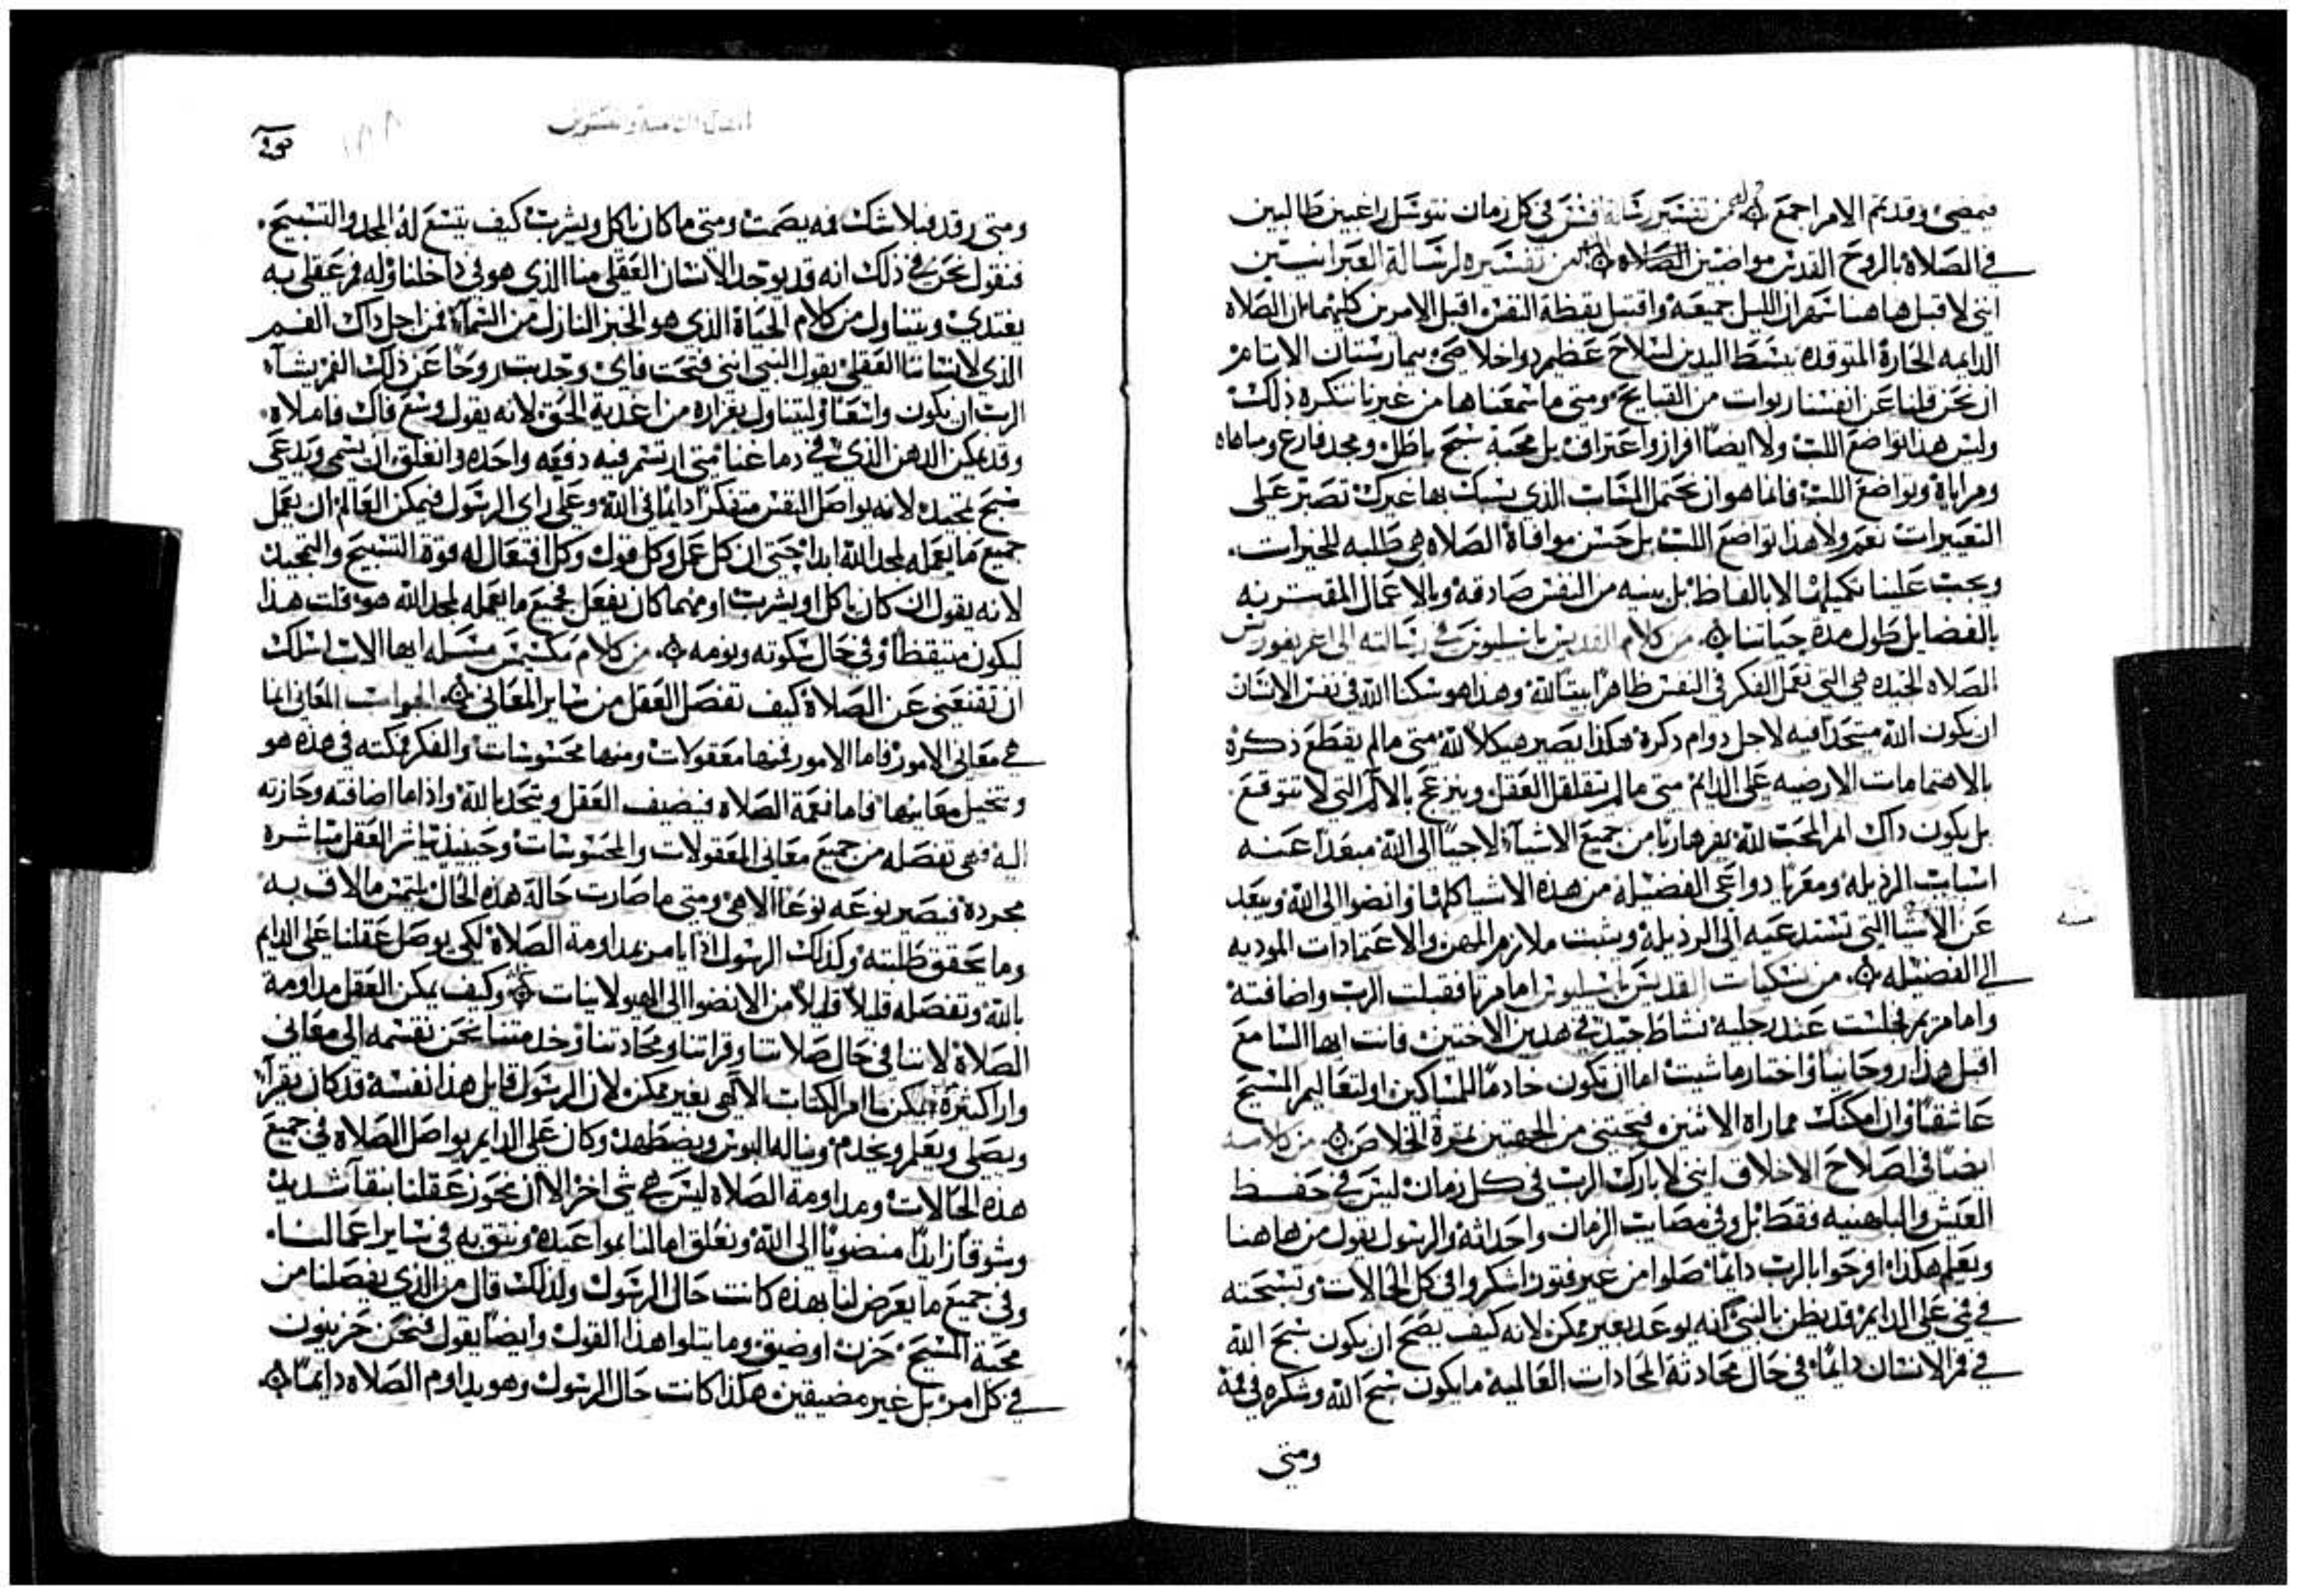 فيمضي وقد تم الامر اجمع من تفسير رسالة افسس في كل زمان نتوسل راغبين طالبين
في الصلاة بالروح القدس مواضبين الصلاه من تفسيره لرسالة العبرانيين
انني لا قبل هاهنا سهران الليل جميعه واقتبل يقظة النفس اقبل الامرين كليهما بل الصلاه
الدايمه الحارة المتوقده ببسط اليدين لسلاح عظيم دواخلاصي بيمارستان الاثام
ان نحن قلنا عن انفسنا ربوات من القبايح ومتى ما سمعناها من غيرنا نتكره ذلك
وليس هذا تواضع اللب ولا ايضًا اقرار واعتراف بل محبة سبح باطل ومجد فارغ ومباهاه
ومراياة وتواضع اللب فانما هو ان تحتمل المسَّبات الذي يسبك بها غيرك تصبر على
التعييرات نعم ولا هذا تواضع اللب بل حسن موافاة الصلاه هي طلبه للخيرات.
ويجب علينا تكميلها لا بالفاظ بل بنيه من النفس صادقه وبالاعمال المقتربه
بالفضايل طول مدة حياتنا من كلام القديس باسيليوس في رسالته الى اغريغوريس
الصلاه الجيده هي التي تعمل الفكر في النفس ظاهرًا بيتًا لله وهذا هو سكنا الله في نفس الانسان
ان يكون الله متحدًا فيه لاجل دوام ذكره هكذا يصير هيكلا لله متى ما لم يقطع ذكره
بالاهتمامات الارضيه على الدايم متى ما لم يتقلقل العقل وينزعج بالالام التي لا تتوقع.
بل يكون ذاك المر المحب لله يفر هاربًا من جميع الاشيآء لاجيًا الى الله مبعدًا عنه
اسباب الرذيله ومقربًا دواعي الفضيلة من هذه الاشيا كلها وانضوا الى الله ويبعد
عن الاشيا التي تستدعيه الى الرذيله ويثبت ملازم المهن والاعتمادات الموديه
الى الفضيله من نسكيات القديس باسيليوس اما مرتا فقبلت الرب واضافته
واما مريم فجلست عند رجليه نشاط جيد في هدين الاختين فانت ايها السامع
اقبل هذا روحانيًا واختار ما شيت اما ان تكون خادمًا للمساكين او لتعاليم المسيح
عاشقًا وان امكنك مماراة الاثنين فتجتني من الجهتين ثمرة الخلاص من كلامه
ايضًا في اصلاح الاخلاق انني لا بارك الرب في كل زمان ليس في حفظ
العيش والباهنيه فقط بل وفي مصايب الزمان واحداثه والرسول يقول من هاهنا
ويعلم هكذا افرحوا بالرب دايمًا صلوا من غير فتور اشكروا في كل الحالات وتسبحته
في فمي على الدايم قد يظن بالنبي انه يوعد بغير ممكن لانه كيف يصح ان يكون سبح الله
في فم الانسان دايمًا في حال محادثة المحادات العالميه ما يكون سبح الله وشكره في فمه
ومتى
ومتى رقد فبلا شك فمه يصمت ومتى ما كان ياكل ويشرب كيف يتسع له المجد والتسبيح.
فنقول نحن في ذلك انه قد يوجد الانسان العقلي منا الذي هو في داخلنا وله فم عقلي به
يغتدي ويتناول من كلام الحياة الذي هو الخبز النازل من السمآء فمن اجل ذاك الفم
الذي لانساننا العقلي يقول النبي انني فتحت فاي وجدبت روحًا عن ذلك الفم يشآء
الرب ان يكون واسعًا وليتناول بغزاره من اغدية الحق لانه يقول وسع فاك فاملاه.
وقد يمكن الدهن الذي في دماغنا متى ارتسم فيه دفعه واحده وانغلق ان يسمى ويدعى
سبح تمجيد لانه يواصل النفس متفكرًا دايمًا في الله وعلى راي الرسول فيمكن العالم ان يعمل
جميع ما يعمله لمجد الله ابدا حتى ان كل عمل وكل قول وكل افتعال له قوة التسبيح والتمجيد
لانه يقول ان كان ياكل او يشرب او مهما كان يفعل فجميع ما يعمله لمجد الله هو قلت هذا
ليكون متيقظًا وفي حال سكوته ونومه من كلام مكسيمس مسئله ايها الاب اسلك
ان تقنعني عن الصلاة كيف تفصل العقل من ساير المعاني الجواب المعاني انما
هي معاني الامور فاما الامور فمنها معقولات ومنها محسوسات والفكر فكته في هذه هو
وتخيل معانيها فاما نعمة الصلاه فتضيف العقل ويتحد بالله واذا ما اضافته وحازته
اليه فهي تفصله من جميع معاني المعقولات والمحسوسات وحينيذ يباشر العقل مباشره
مجردة فيصير نوعه نوعًا الاهي ومتى ما صارت حالة هذه الحال يلتمس ما لاق به
وما يحقق طلبته وكذلك الرسول اذا يامر بمداومة الصلاة لكي يوصل عقلنا على الدايم
بالله وتفصله قليلاً قليلاً من الانضوا الى الهيولانيات وكيف يمكن العقل مداومة
الصلاة لاننا في حال صلاتنا وقراتنا ومحادثنا وخدمتنا نحن نقسمه الى معاني
وارا كثيرة يمكن ما امر الكتاب الالهي بغير ممكن لان الرسول قايل هذا نفسه قد كان يقرآء
ويصلي ويعلم ويخدم ويناله البوس ويضطهد وكان على الدايم يواصل الصلاه في جميع
هذه الحالات ومداومة الصلاه ليس هي شي اخر الا ان نحوز عقلنا بنقآء شديد
وشوقًا زايدًا منضويًا الى الله ونعلق امالنا بمواعيده ونثق به في ساير اعمالنا.
وفي جميع ما يعرض لنا بهذه كانت حال الرسول ولذلك قال من الذي يفصلنا من
محبة المسيح حزن او ضيق وما يتلوا هذا القول وايضًا يقول فنحن حزينون
في كل امر بل غير مضيقين هكذا كانت حال الرسول وهو يداوم الصلاه دايمًا